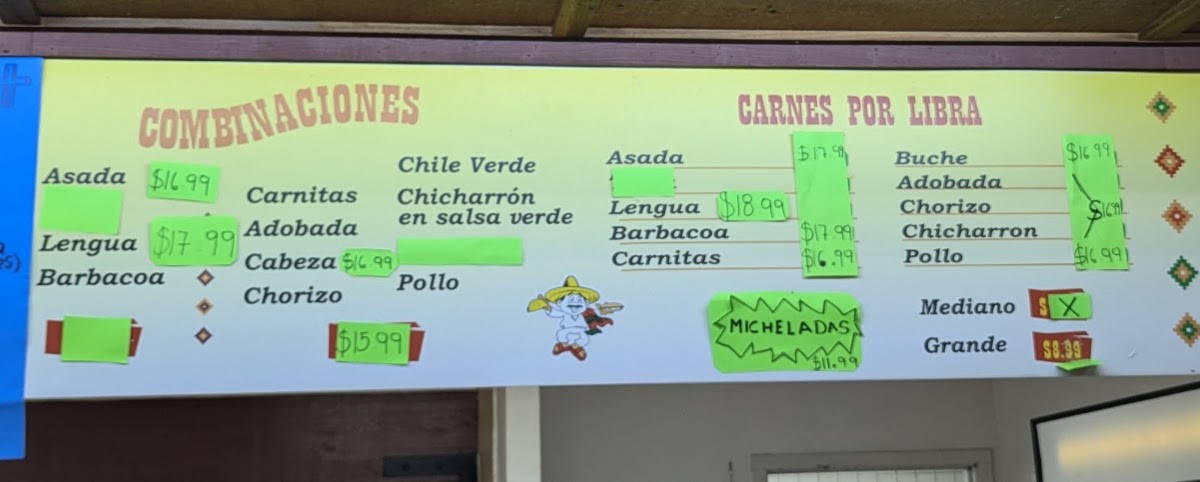 COMBINACIONES
Asada $16.99
Lengua $17.99
Barbacoa
Carnitas
Adobada
Cabeza $16.99
Chorizo
$15.99
Chile Verde
Chicharrón
en salsa verde
Pollo
CARNES POR LIBRA
Asada $17.99
Lengua $18.99
Barbacoa $17.99
Carnitas $16.99
Buche $16.99
Adobada
Chorizo $16.99
Chicharron
Pollo $16.99
MICHELADAS
$11.99
Mediano $ X
Grande $8.99